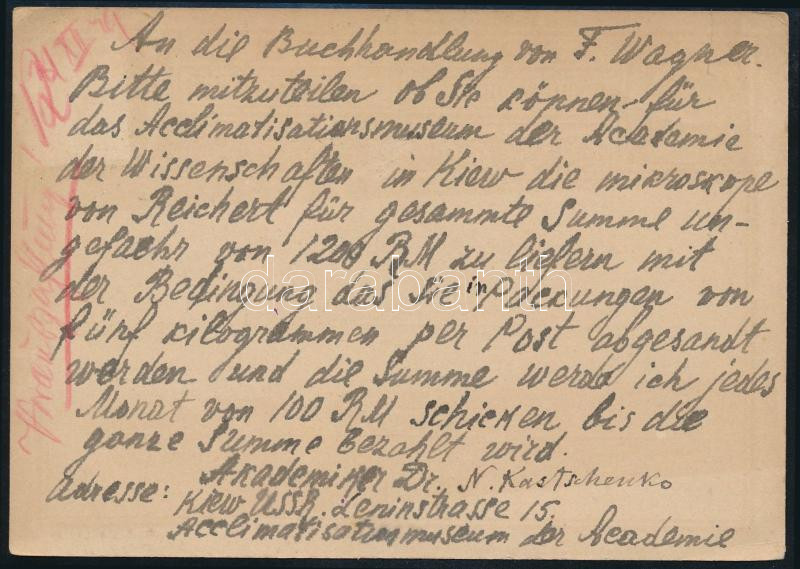 An die Buchhandlung von F. Wagner.
Bitte mitzuteilen ob Sie können für
das Acclimatisationsmuseum der Academie
der Wissenschaften in Kiew die mikroskope
von Reichert für gesammte Summe un-
gefaehr von 1200 RM zu liefern mit
der Bedingung das Sie in Packungen von
fünf kilogrammen per Post abgesandt
werden und die Summe werde ich jedes
Monat von 100 RM schicken bis die
ganze Summe bezahlt wird.
Akademiker Dr. N. Kastschenko
Adresse: Kiew USSR. Leninstrasse 15.
Acclimatisationmuseum der Academie
darabanth